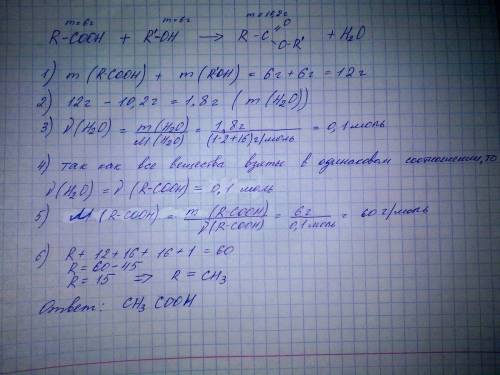 m=6г m=6г m=10,2г
R-COOH + R'-OH → R-C=O O-R' + H₂O
1) m (RCOOH) + m (R'OH) = 6г + 6г = 12г
2) 12г - 10,2г = 1,8г ( m(H₂O))
3) ν(H₂O) = m(H₂O) / M(H₂O) = 1,8г / (1·2+16)г/моль = 0,1 моль
4) так как все вещества взяты в одинаковом соотношении, то
ν(H₂O) = ν(R-COOH) = 0,1 моль
5) M(R-COOH) = m (R-COOH) / ν(R-COOH) = 6г / 0,1моль = 60 г/моль
6) R + 12 + 16 + 16 + 1 = 60
R = 60 - 45
R = 15 ⇒ R = CH₃
Ответ: CH₃COOH